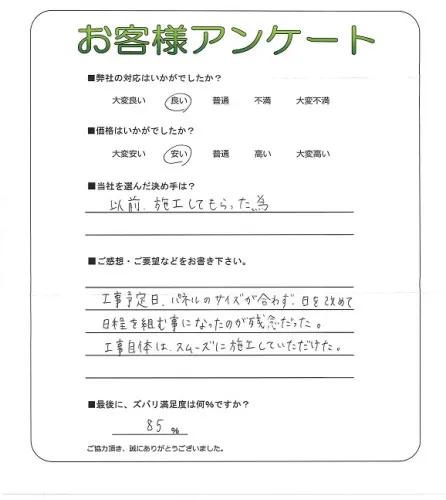 お客様アンケート
■弊社の対応はいかがでしたか？
大変良い 良い 普通 不満 大変不満
■価格はいかがでしたか？
大変安い 安い 普通 高い 大変高い
■当社を選んだ決め手は？
以前、施工してもらった為
■ご感想・ご要望などをお書き下さい。
工事予定日、パネルのサイズが合わず、日を改めて
日程を組む事になったのが残念だった。
工事自体は、スムーズに施工していただけた。
■最後に、ズバリ満足度は何%ですか？
85 %
ご協力頂き、誠にありがとうございました。